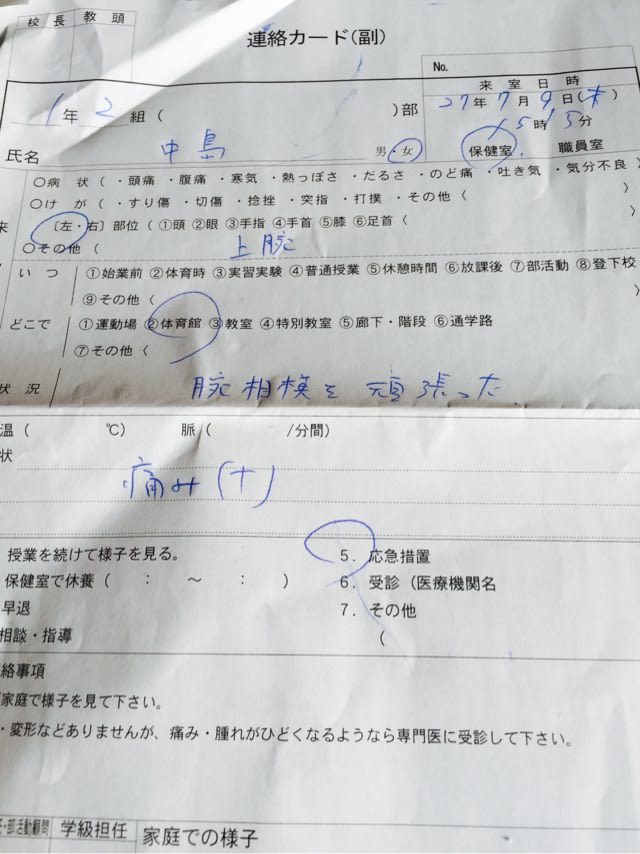 校長 教頭
連絡カード(副)
No.
1年2組( )部
来室日時
27年7月9日(木)
15時15分
氏名 中島 男・女
保健室. 職員室
○病状(・頭痛・腹痛・寒気・熱っぽさ・だるさ・のど痛・吐き気・気分不良)
○けが(・すり傷・切傷・捻挫・突指・打撲・その他〈 〉
来
〔左・右〕部位(①頭②眼③手指④手首⑤膝⑥足首〈 〉
○その他( 上腕
いつ ①始業前②体育時③実習実験④普通授業⑤休憩時間⑥放課後⑦部活動⑧登下校
⑨その他〈 〉
どこで ①運動場②体育館③教室④特別教室⑤廊下・階段⑥通学路
⑦その他〈
状況 腕相撲を頑張った
温( ℃) 脈( /分間)
状
痛み(+)
授業を続けて様子を見る。 5. 応急措置
保健室で休養( : ～ : ) 6. 受診(医療機関名
早退 7. その他
相談・指導 (
絡事項
家庭で様子を見て下さい。
・変形などありませんが、痛み・腫れがひどくなるようなら専門医に受診して下さい。
・部活動顧問 学級担任 家庭での様子